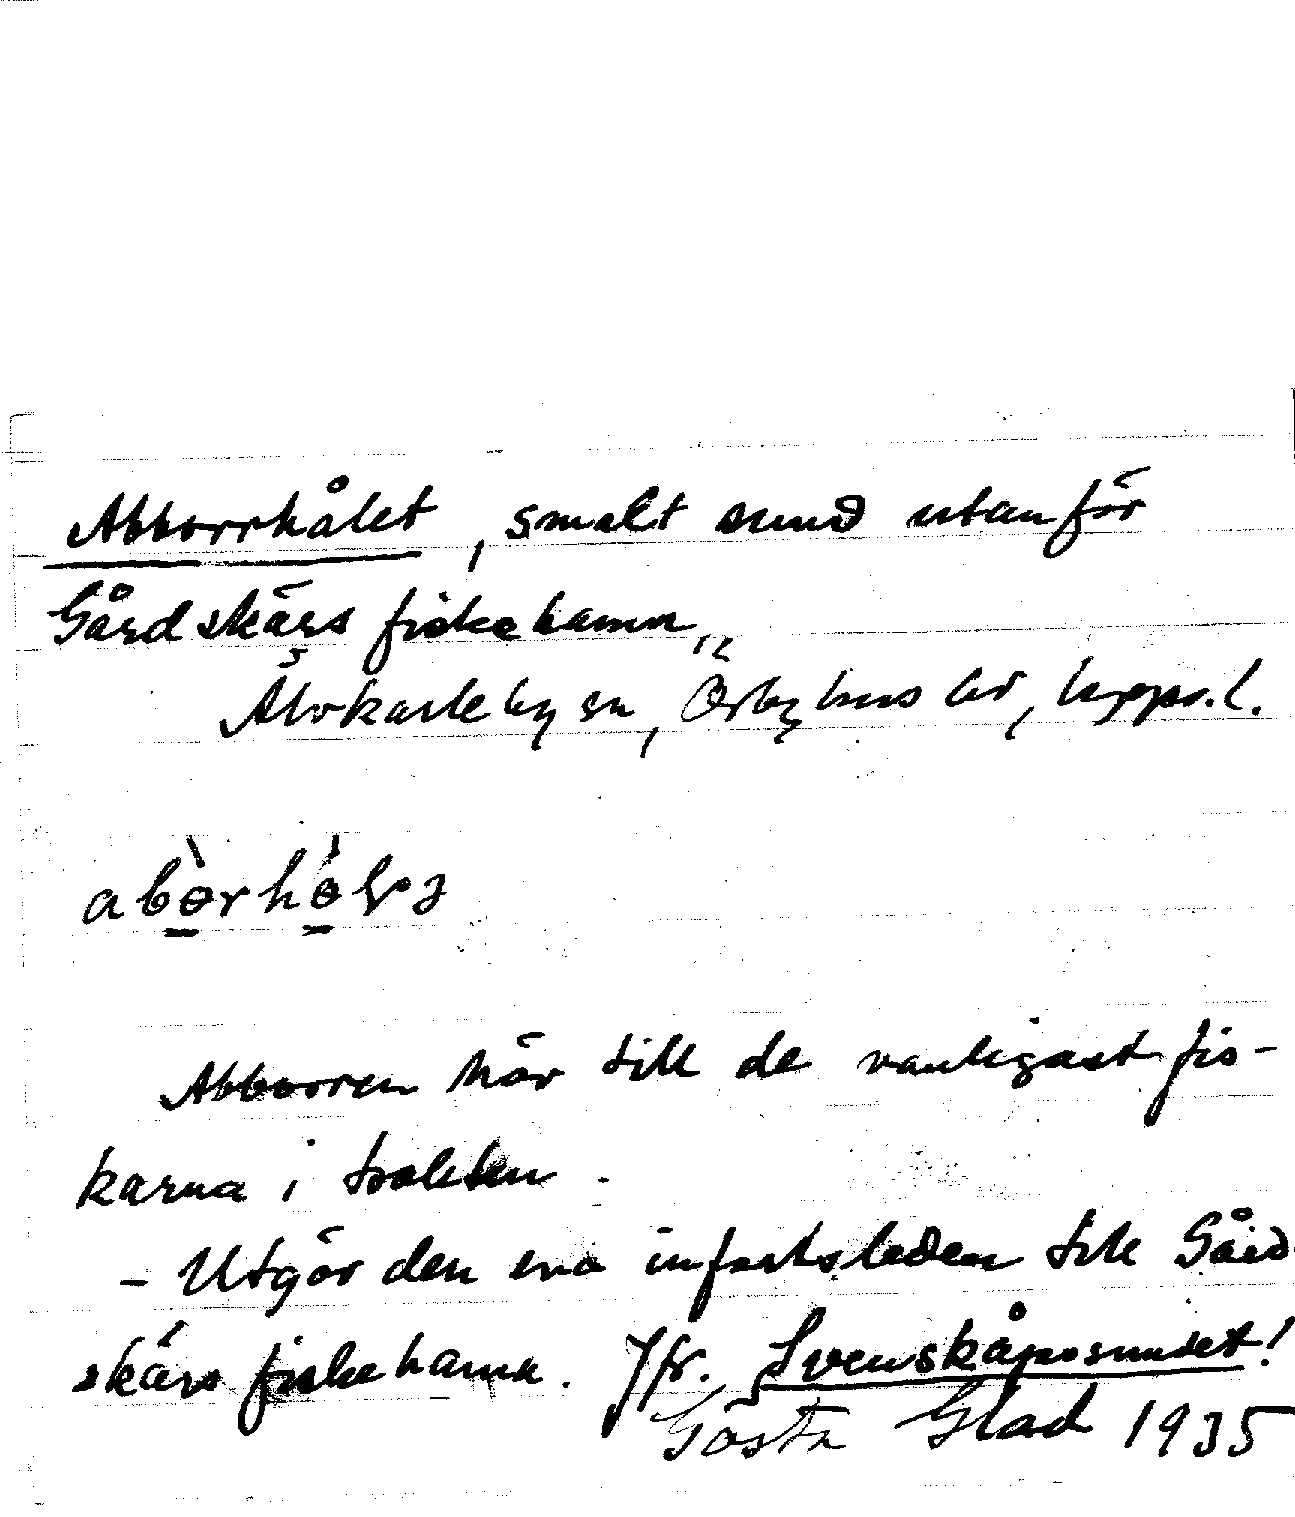 Abborrhålet, smalt sund utanför
Gårdskärs fiskehamn,
Älvkarleby sn, Örbyhus hd, Upps. l.
Abborren hör till de vanligast fis-
karna i trakten.
- Utgör den ena infartsleden till Gård
skärs fiskehamn. Jfr. Svenskåpssundet!
Gösta Glad 1935